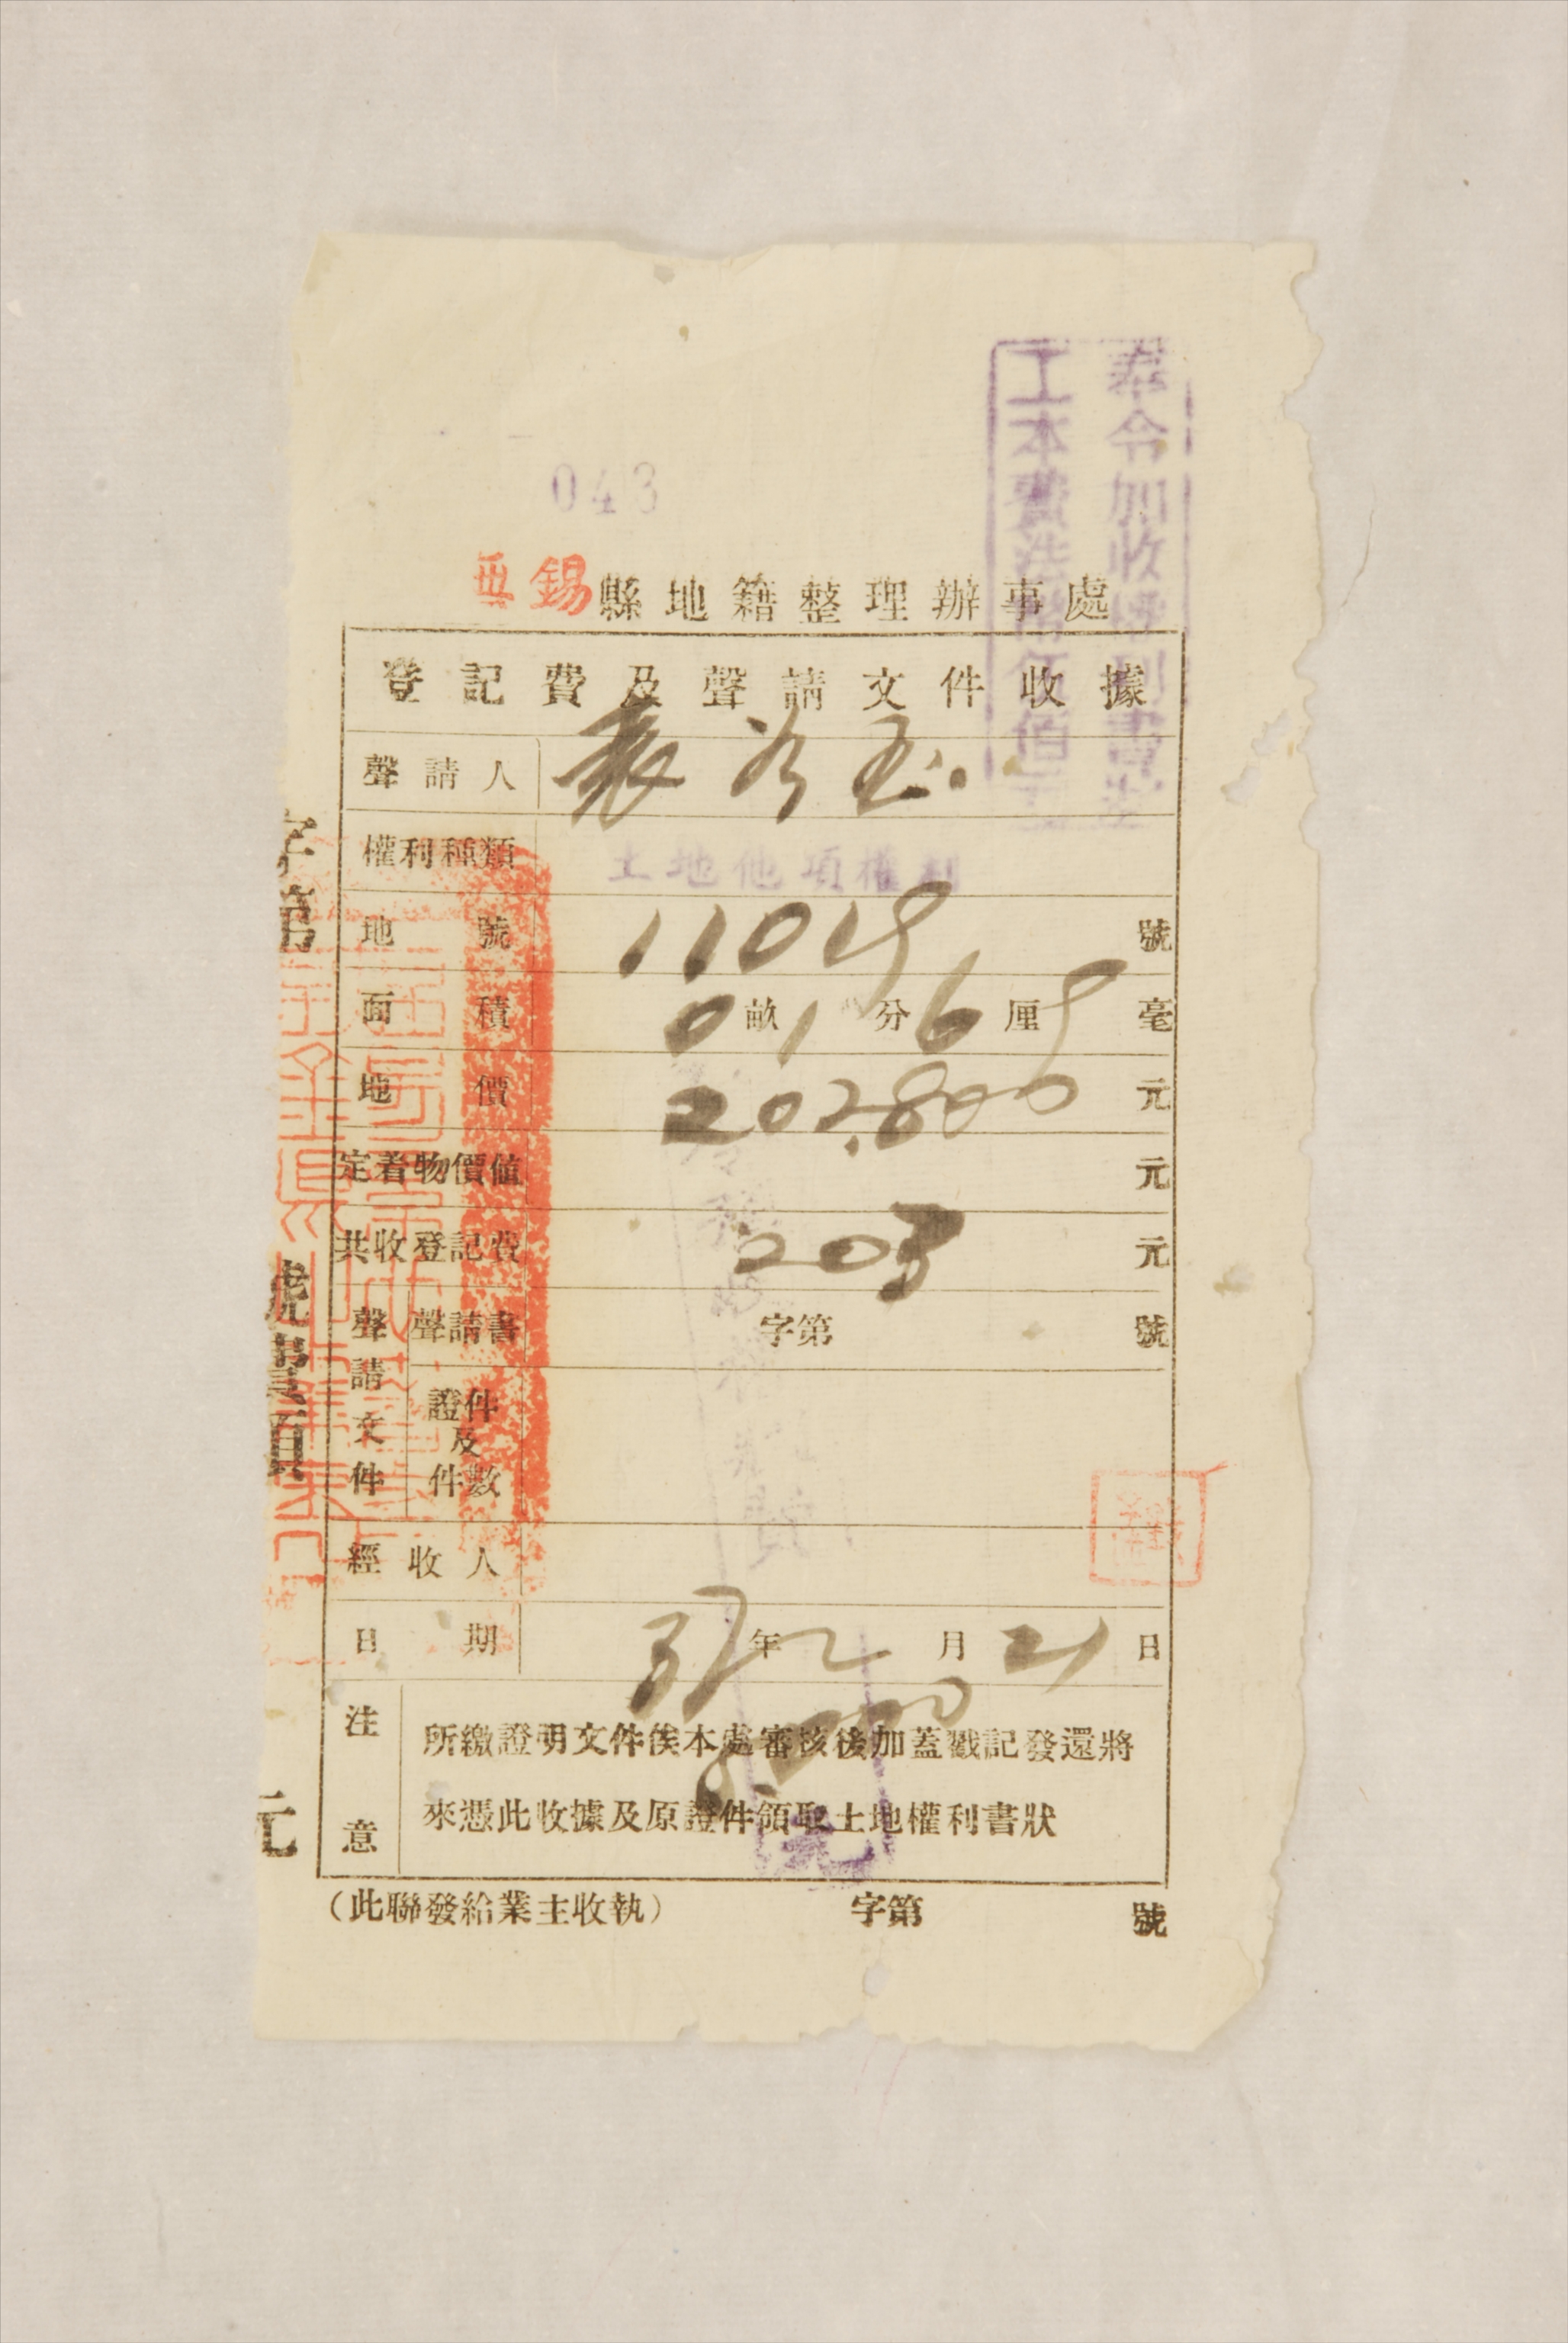 奉令加收權利書狀
工本費法幣伍佰元
043
無錫縣地籍整理辦事處
登記費及聲請文件收據
聲請人
權利種類 土地他項權利
地號 11019 號
面積 0畝1分6厘9毫
地價 202,800 元
定着物價值 元
共收登記費 203 元
聲請文件 聲請書 字第 號
證件及件數
經收人
日期 37年2月21日
注意 所繳證明文件俟本處審核後加蓋戳記發還將
來憑此收據及原證件領取土地權利書狀
(此聯發給業主收執) 字第 號
字第
號
元